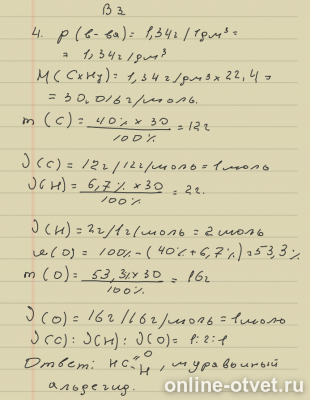 В 3
4. ρ (в-ва) = 1,34г/1дм³ =
= 1,34г/дм³
M(CxHy) = 1,34г/дм³ × 22,4 =
= 30,016г/моль.
m (C) = 40% × 30 / 100% = 12г
ν(C) = 12г/12г/моль = 1моль
ν(H) = 6,7% × 30 / 100% = 2г.
ν(H) = 2г/1г/моль = 2моль
w(O) = 100% - (40% + 6,7%) = 53,3%
m (O) = 53,3% × 30 / 100% = 16г
ν(O) = 16г/16г/моль = 1моль
ν(C) : ν(H) : ν(O) = 1:2:1
Ответ: HC=O-H, муравьиный
альдегид.
online-otvet.ru